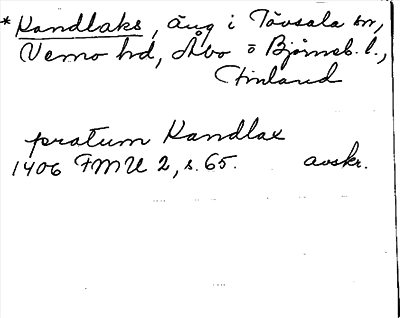 * Kandlaks, äng i Tövsala sn,
Vemo hd, Åbo o Björneb. l.,
Finland
pratum Kandlax
1406 FMU 2, s. 65. avskr.